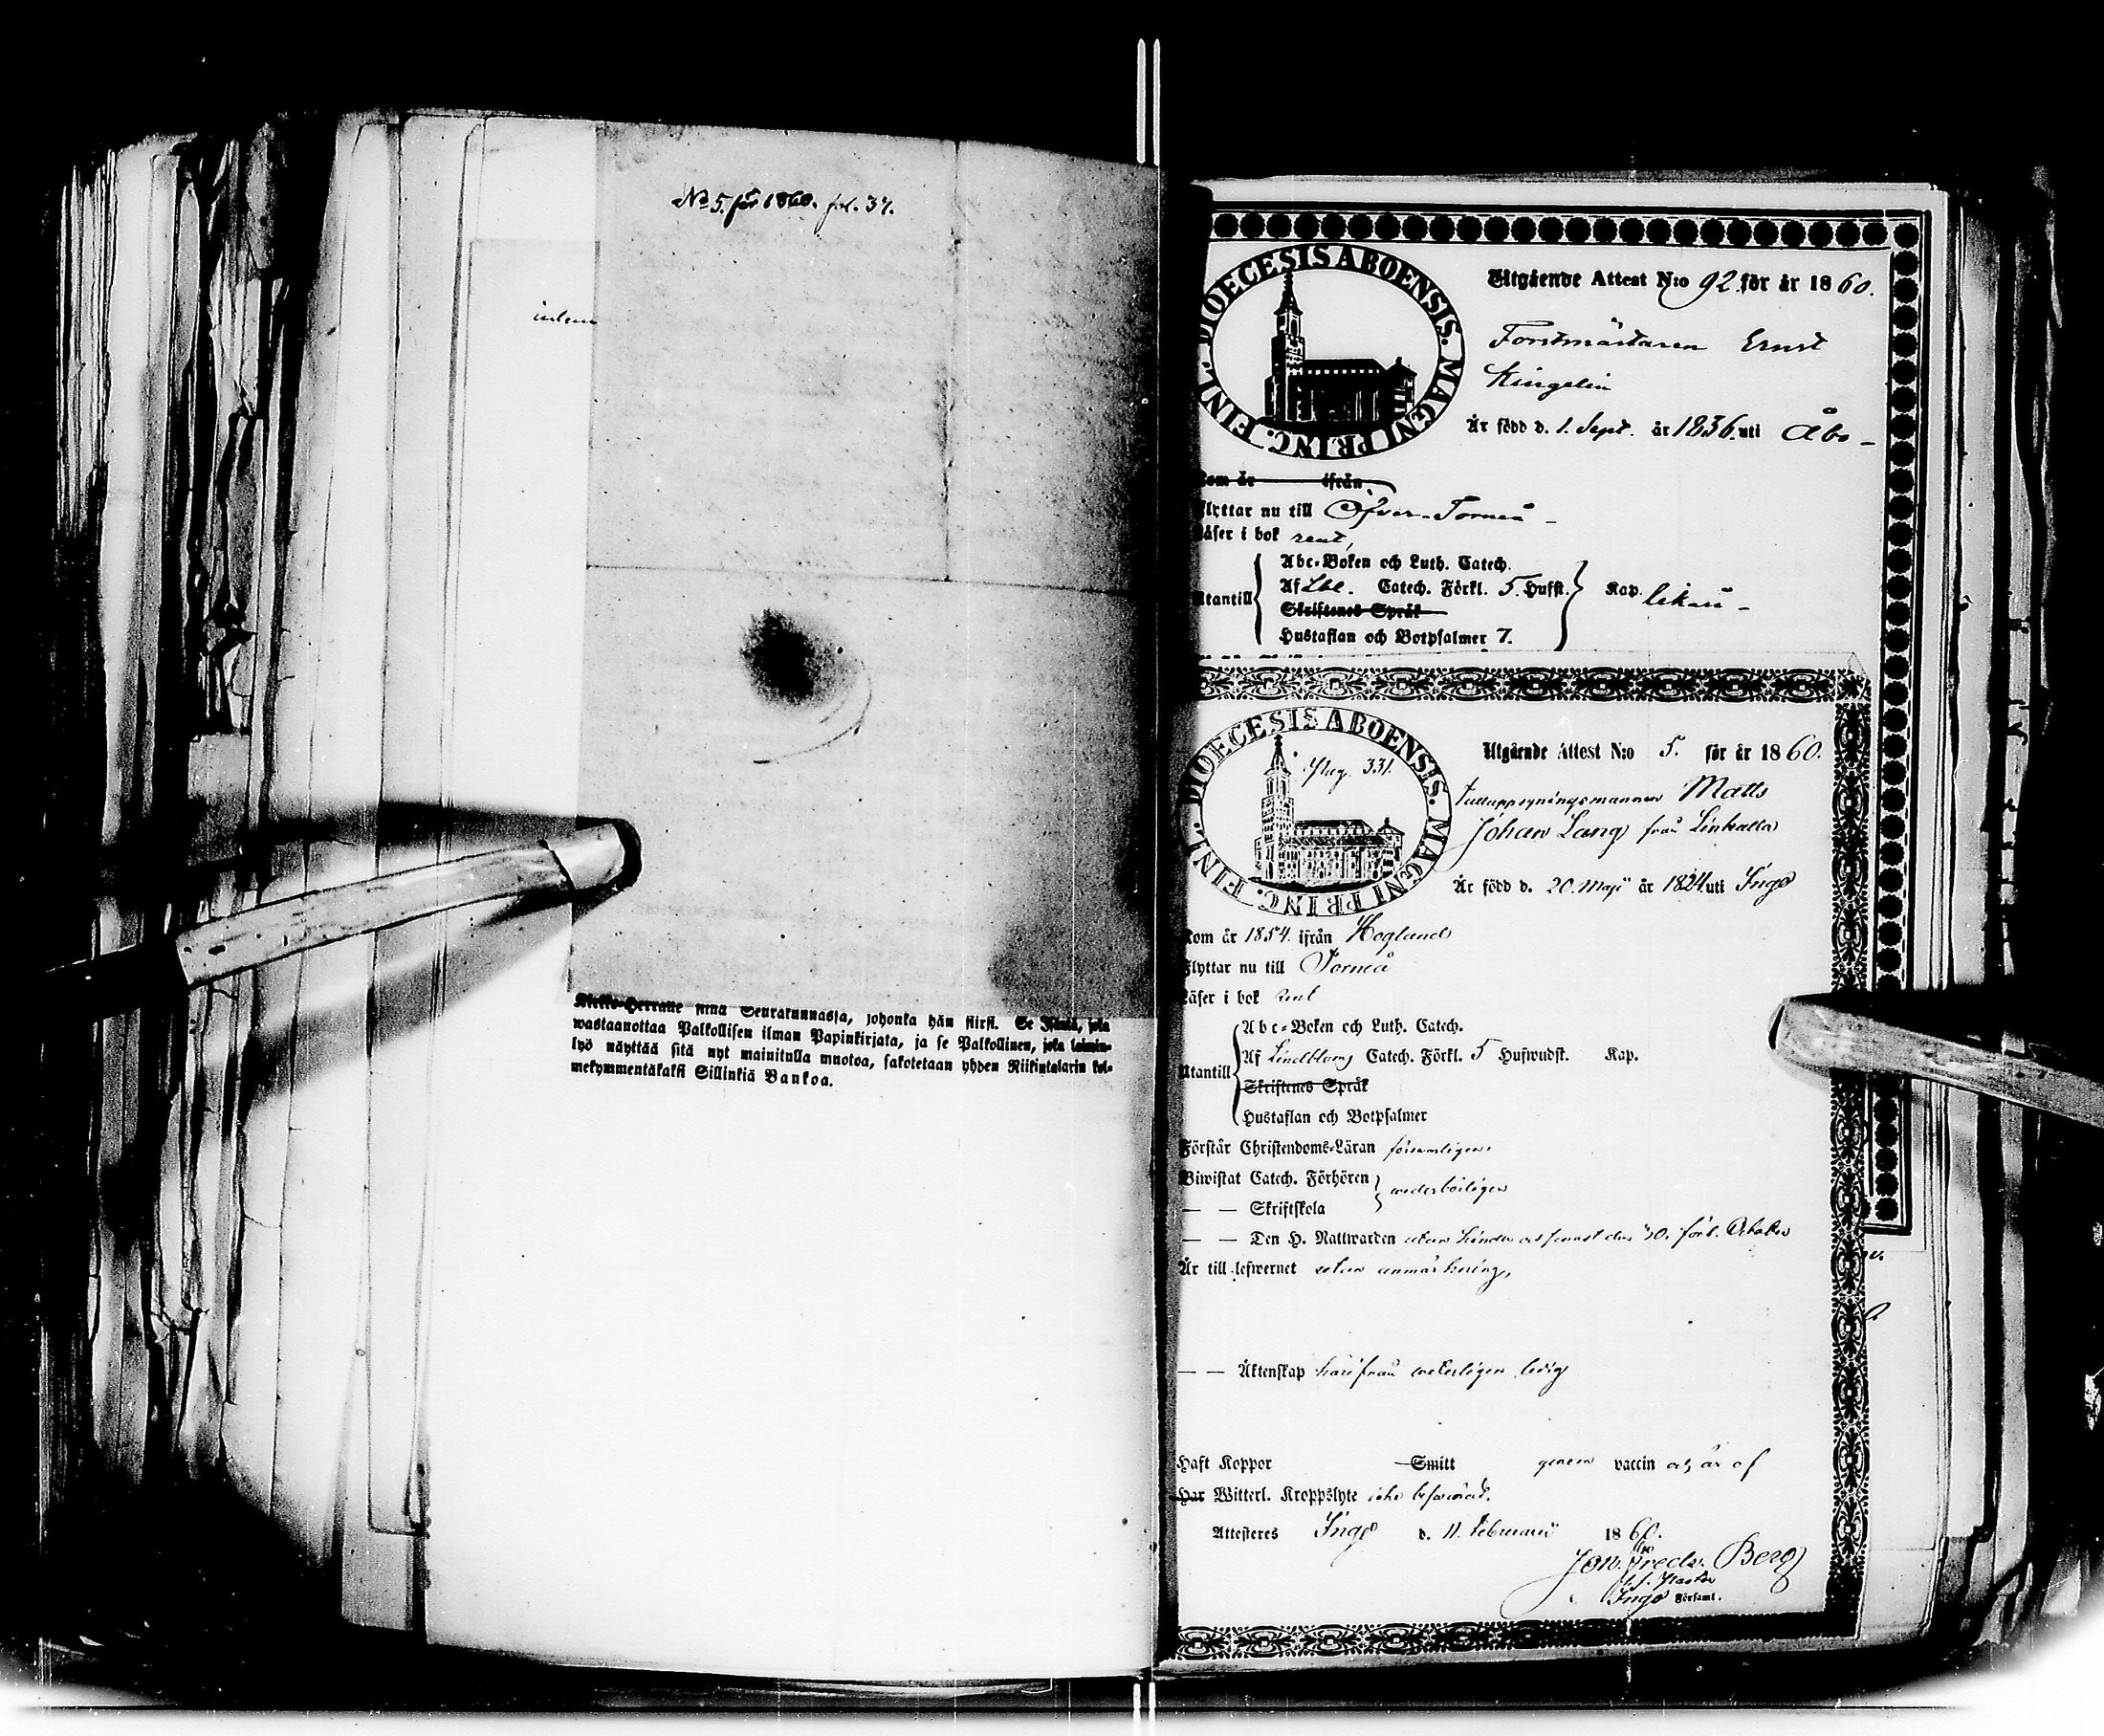 No 5. för 1860. fol. 37.
Kirkko-Herralle siinä Seurakunnassa, johonka hän siirsi. Se Isäntä, joka
wastaanottaa Palkollisen ilman Papinkirjata, ja se Palkollinen, joka laimin-
lyö näyttää sitä nyt mainitulla muotoa, sakotetaan yhden Riikintalarin kol-
mekymmentäkaksi Sillinkiä Bankoa.
DIOECESIS ABOENSIS. MAGNI PRINC. FINL.
Utgående Attest N:o 92 för år 1860.
Forstmästaren Ernst
Kingelin
Är född d. 1. Sept. år 1836. uti Åbo -
Kom år ifrån
Flyttar nu till Öfver-Torneå -
Läser i bok rent,
Abc-Boken och Luth. Catech.
Utantill Af Lbl. Catech. Förkl. 5. Hufst. Kap.
Skriftenes Språk
Hustaflan och Botpsalmer 7.
DIOECESIS ABOENSIS. MAGNI PRINC. FINL.
331.
Utgående Attest N:o 5. för år 1860.
Tulluppsyningsmannen Matts
Johan Lang från Linkulla
Är född d. 20. Maji år 1824 uti Ingo
Kom år 1854. ifrån Hogland
Flyttar nu till Torneå
Läser i bok rent
Abc-Boken och Luth. Catech.
Utantill Af Lindbloms Catech. Förkl. 5 Hufwudst. Kap.
Skriftenes Språk
Hustaflan och Botpsalmer
Förstår Christendoms-Läran försvarligen.
Biwistat Catech. Förhören wederbörligen
— — Skriftskola
— — Den H. Nattwarden utan hinder och senast den 30. förl. October
Är till lefwernet utan anmärkning,
— — Äktenskap härifrån weterligen ledig
Haft Koppor Smitt genom vaccin och är af
Har Witterl. Kroppslyte icke beswärad.
Attesteres Ingo d. 11. Februarii 1860.
Joh. Fredr. Berg
Pastor
Ingo Församl.